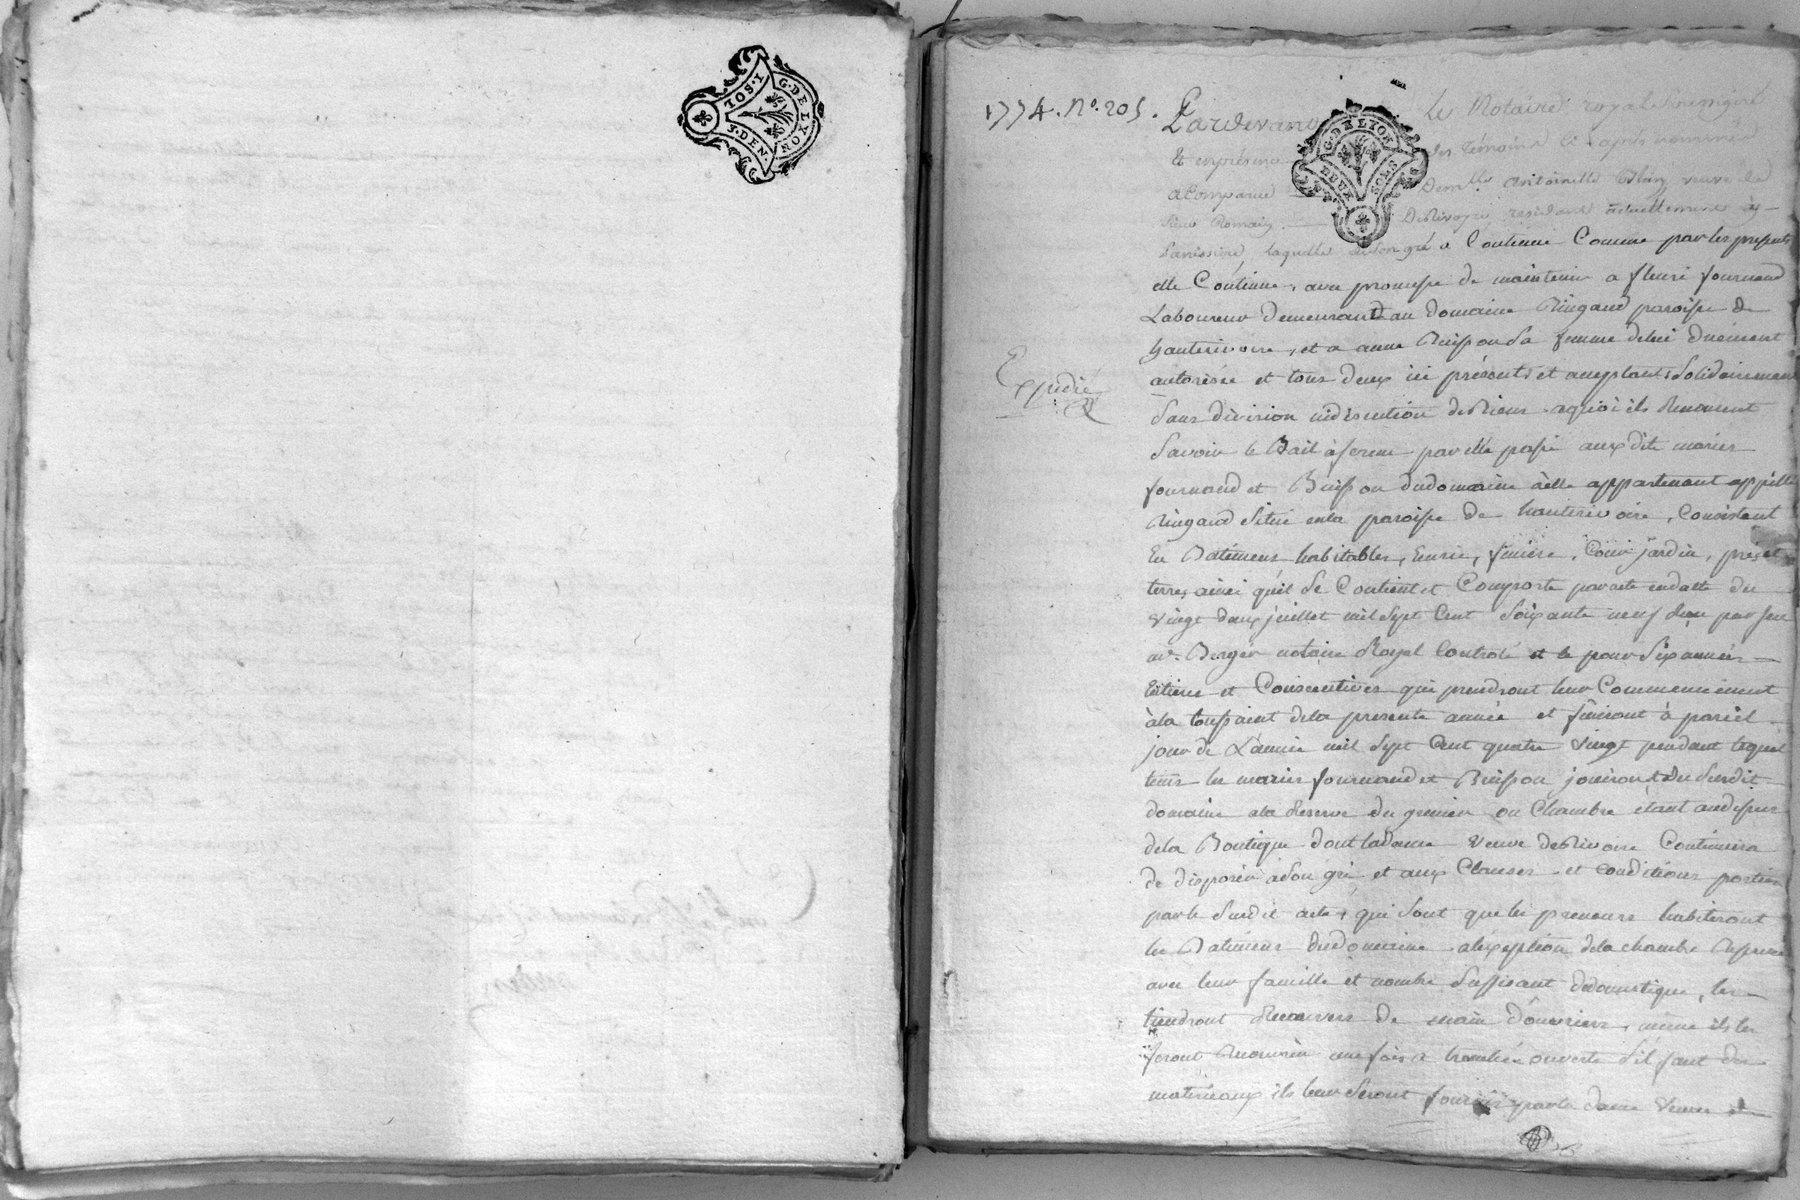 2 SOLS. G. DE LYON
S. DEN.
1774. N.º 205.
Pardevant le Notaire royal soussigné
Et en présence des témoins ci après nommés
a Comparue Demlle antoinette veuve de
sieur Romain DeRivoyre residante actuellement à
Panissiere, laquelle de son gré a Continué Comme par les presentes
elle Continue, avec promesse de maintenir a fleuri fournand
Laboureur demeurant au domaine Ringaud paroisse de
hauterivoire, et a anne Buisson sa femme de lui duëment
autorisée et tous deux ici présents et acceptants solidairement
Sans division ni discution de Biens a quoi ils Renoncent
Savoir le Bail à ferme par elle passé aux dits mariés
fournand et Buisson du domaine à elle appartenant appellé
Ringaud situé en la paroisse de hauterivoire, Consistant
En Batimens habitables, Ecurie, feniere, Cour, jardin, prés et
terres ainsi qu'il se Contient et Comporte par acte en datte du
vingt deux juillet mil sept Cent soixante neuf reçu par feu
me. Berger notaire Royal Controlé et le pour six années
Entieres et Consecutives qui prendront leur Commencement
à la toussaint de la presente année et finiront à pareil
jour de L'année mil sept Cent quatre vingt pendant lequel
tems les mariés fournand et Buisson jouiront du susdit
domaine a la Reserve du grenier ou Chambre étant au dessus
de la Boutique dont la dame veuve deRivoire Continuera
de disposer à son gré et aux Clauses et conditions portées
par le susdit acte, qui sont que les preneurs habiteront
les Batimens du domaine a l'exeption de la chambre Reservée
avec leur famille et nombre suffisant de domestique, les
tiendront Recouverts de main d'ouvriers, même ils les
feront Recouvrir une fois a tranchée ouverte s'il faut des
materiaux ils leur seront fournis par la dame veuve de
Expedié
G. DE LYON
DEUX SOLS